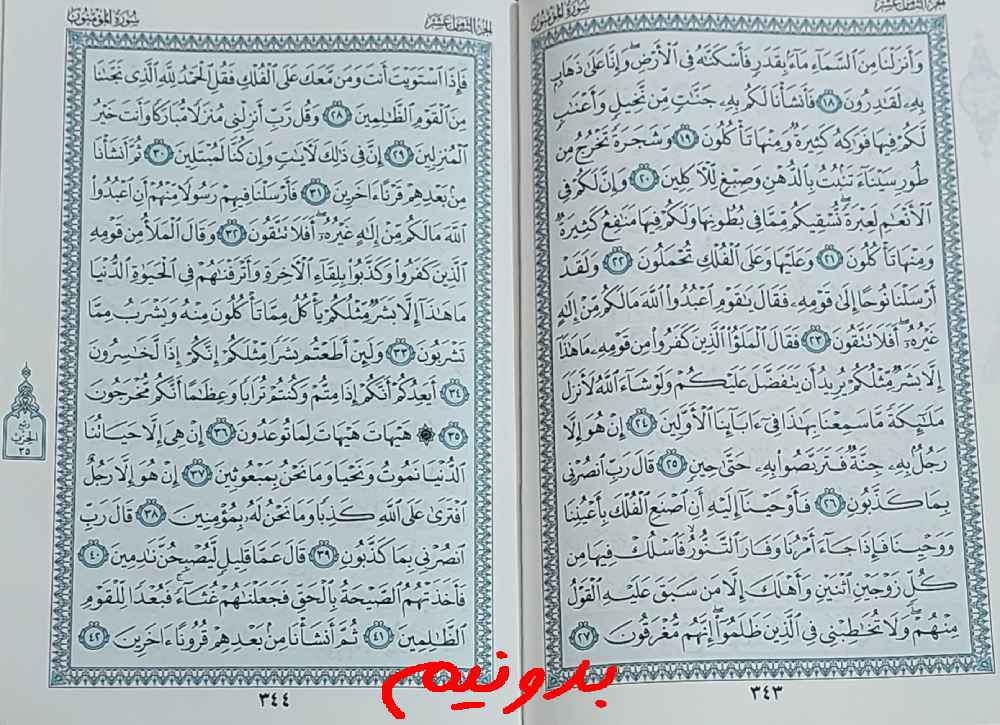 الجزء الثامن عشر
سورة المؤمنون
وَأَنزَلْنَا مِنَ السَّمَاءِ مَاءً بِقَدَرٍ فَأَسْكَنَّاهُ فِي الْأَرْضِ وَإِنَّا عَلَىٰ ذَهَابٍ
بِهِ لَقَادِرُونَ ١٨ فَأَنشَأْنَا لَكُم بِهِ جَنَّاتٍ مِّن نَّخِيلٍ وَأَعْنَابٍ
لَّكُمْ فِيهَا فَوَاكِهُ كَثِيرَةٌ وَمِنْهَا تَأْكُلُونَ ١٩ وَشَجَرَةً تَخْرُجُ مِن
طُورِ سَيْنَاءَ تَنبُتُ بِالدُّهْنِ وَصِبْغٍ لِّلْآكِلِينَ ٢٠ وَإِنَّ لَكُمْ فِي
الْأَنْعَامِ لَعِبْرَةً نُّسْقِيكُم مِّمَّا فِي بُطُونِهَا وَلَكُمْ فِيهَا مَنَافِعُ كَثِيرَةٌ
وَمِنْهَا تَأْكُلُونَ ٢١ وَعَلَيْهَا وَعَلَى الْفُلْكِ تُحْمَلُونَ ٢٢ وَلَقَدْ
أَرْسَلْنَا نُوحًا إِلَىٰ قَوْمِهِ فَقَالَ يَا قَوْمِ اعْبُدُوا اللَّهَ مَا لَكُم مِّنْ إِلَٰهٍ
غَيْرُهُ أَفَلَا تَتَّقُونَ ٢٣ فَقَالَ الْمَلَؤُا الَّذِينَ كَفَرُوا مِن قَوْمِهِ مَا هَٰذَا
إِلَّا بَشَرٌ مِّثْلُكُمْ يُرِيدُ أَن يَتَفَضَّلَ عَلَيْكُمْ وَلَوْ شَاءَ اللَّهُ لَأَنزَلَ
مَلَائِكَةً مَّا سَمِعْنَا بِهَٰذَا فِي آبَائِنَا الْأَوَّلِينَ ٢٤ إِنْ هُوَ إِلَّا
رَجُلٌ بِهِ جِنَّةٌ فَتَرَبَّصُوا بِهِ حَتَّىٰ حِينٍ ٢٥ قَالَ رَبِّ انصُرْنِي
بِمَا كَذَّبُونِ ٢٦ فَأَوْحَيْنَا إِلَيْهِ أَنِ اصْنَعِ الْفُلْكَ بِأَعْيُنِنَا
وَوَحْيِنَا فَإِذَا جَاءَ أَمْرُنَا وَفَارَ التَّنُّورُ فَاسْلُكْ فِيهَا مِن
كُلٍّ زَوْجَيْنِ اثْنَيْنِ وَأَهْلَكَ إِلَّا مَن سَبَقَ عَلَيْهِ الْقَوْلُ
مِنْهُمْ وَلَا تُخَاطِبْنِي فِي الَّذِينَ ظَلَمُوا إِنَّهُم مُّغْرَقُونَ ٢٧
٣٤٣
الجزء الثامن عشر
سورة المؤمنون
فَإِذَا اسْتَوَيْتَ أَنتَ وَمَن مَّعَكَ عَلَى الْفُلْكِ فَقُلِ الْحَمْدُ لِلَّهِ الَّذِي نَجَّانَا
مِنَ الْقَوْمِ الظَّالِمِينَ ٢٨ وَقُل رَّبِّ أَنزِلْنِي مُنزَلًا مُّبَارَكًا وَأَنتَ خَيْرُ
الْمُنزِلِينَ ٢٩ إِنَّ فِي ذَٰلِكَ لَآيَاتٍ وَإِن كُنَّا لَمُبْتَلِينَ ٣٠ ثُمَّ أَنشَأْنَا
مِن بَعْدِهِمْ قَرْنًا آخَرِينَ ٣١ فَأَرْسَلْنَا فِيهِمْ رَسُولًا مِّنْهُمْ أَنِ اعْبُدُوا
اللَّهَ مَا لَكُم مِّنْ إِلَٰهٍ غَيْرُهُ أَفَلَا تَتَّقُونَ ٣٢ وَقَالَ الْمَلَأُ مِن قَوْمِهِ
الَّذِينَ كَفَرُوا وَكَذَّبُوا بِلِقَاءِ الْآخِرَةِ وَأَتْرَفْنَاهُمْ فِي الْحَيَاةِ الدُّنْيَا
مَا هَٰذَا إِلَّا بَشَرٌ مِّثْلُكُمْ يَأْكُلُ مِمَّا تَأْكُلُونَ مِنْهُ وَيَشْرَبُ مِمَّا
تَشْرَبُونَ ٣٣ وَلَئِنْ أَطَعْتُم بَشَرًا مِّثْلَكُمْ إِنَّكُمْ إِذًا لَّخَاسِرُونَ
٣٤ أَيَعِدُكُمْ أَنَّكُمْ إِذَا مِتُّمْ وَكُنتُمْ تُرَابًا وَعِظَامًا أَنَّكُم مُّخْرَجُونَ
٣٥ ۞ هَيْهَاتَ هَيْهَاتَ لِمَا تُوعَدُونَ ٣٦ إِنْ هِيَ إِلَّا حَيَاتُنَا
الدُّنْيَا نَمُوتُ وَنَحْيَا وَمَا نَحْنُ بِمَبْعُوثِينَ ٣٧ إِنْ هُوَ إِلَّا رَجُلٌ
افْتَرَىٰ عَلَى اللَّهِ كَذِبًا وَمَا نَحْنُ لَهُ بِمُؤْمِنِينَ ٣٨ قَالَ رَبِّ
انصُرْنِي بِمَا كَذَّبُونِ ٣٩ قَالَ عَمَّا قَلِيلٍ لَّيُصْبِحُنَّ نَادِمِينَ ٤٠
فَأَخَذَتْهُمُ الصَّيْحَةُ بِالْحَقِّ فَجَعَلْنَاهُمْ غُثَاءً فَبُعْدًا لِّلْقَوْمِ
الظَّالِمِينَ ٤١ ثُمَّ أَنشَأْنَا مِن بَعْدِهِمْ قُرُونًا آخَرِينَ ٤٢
٣٤٤
ربع
الحزب
٣٥
بدونیم